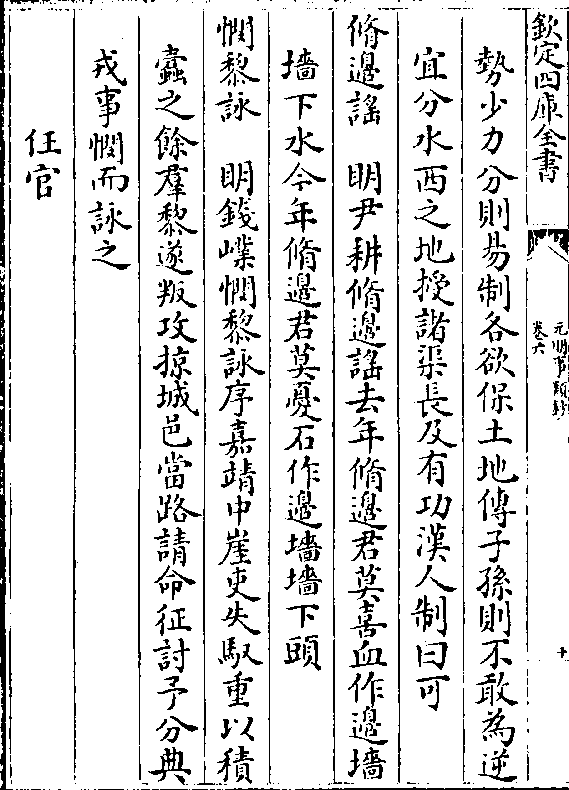 欽定四庫全書
元明事類鈔
卷六
十
勢少力分則易制各欲保土地傳子孫則不敢為逆
宜分水西之地授諸渠長及有功漢人制曰可
脩邊謠　明尹耕脩邊謠去年脩邊君莫喜血作邊墻
墻下水今年脩邊君莫憂石作邊墻墻下頭
憫黎詠　明錢嶫憫黎詠序嘉靖中崖吏失馭重以積
蠹之餘羣黎遂叛攻掠城邑當路請命征討予分典
戎事憫而詠之
任官